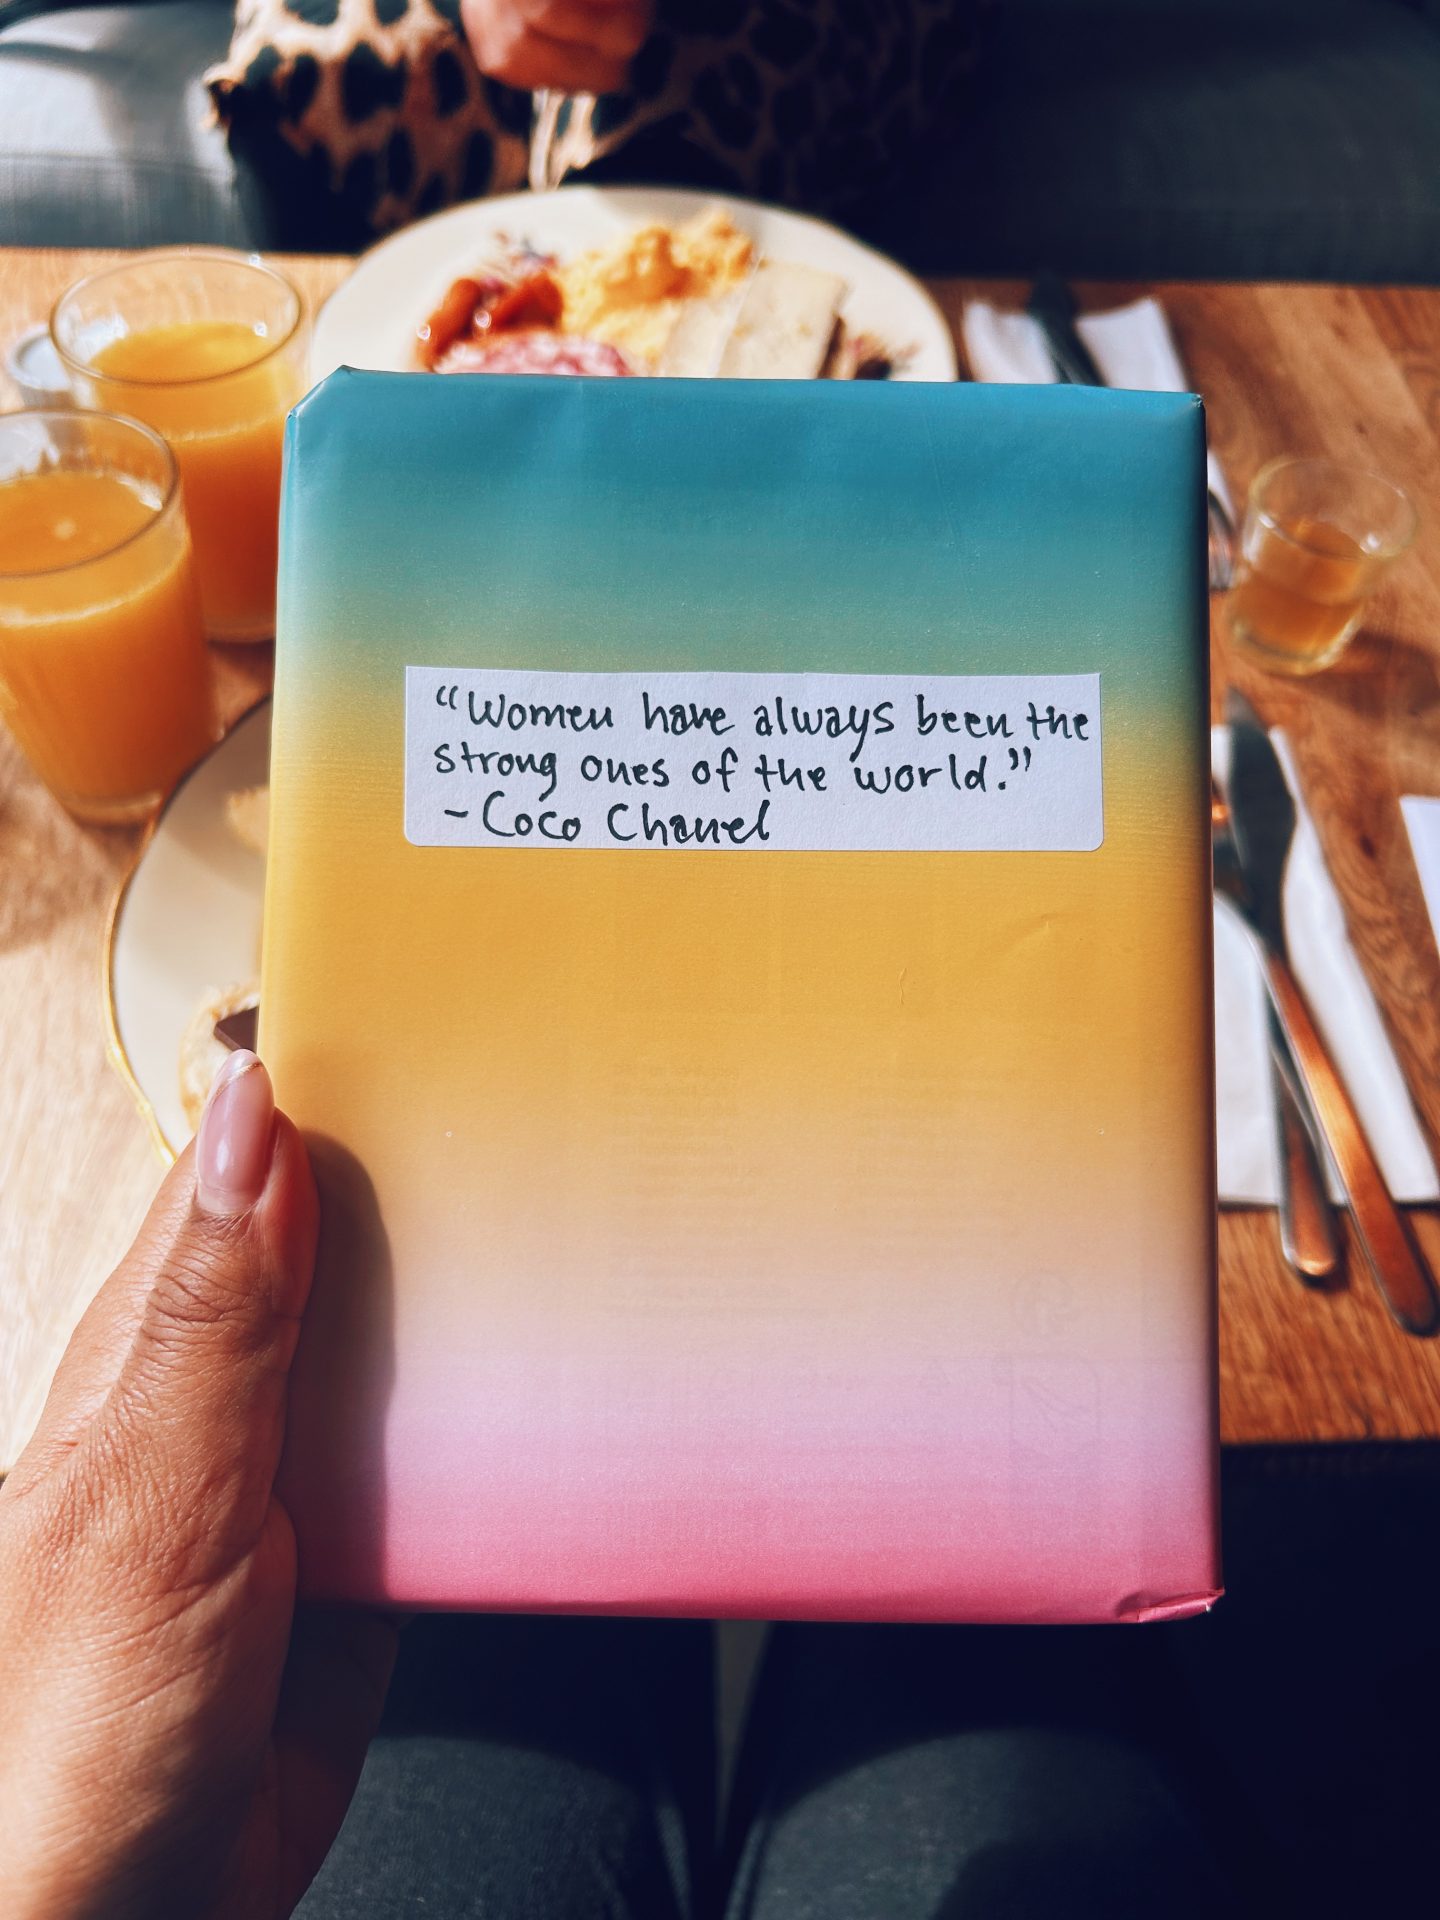 “Women have always been the
strong ones of the world.”
- Coco Chanel